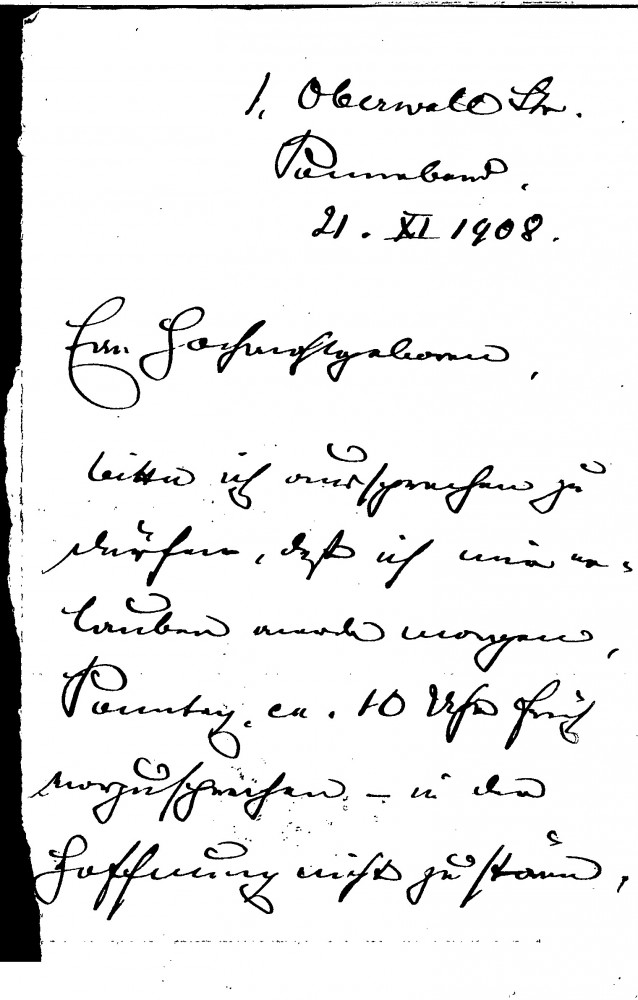 1, Oberwall Str.
Sonnabend,
21. XI 1908.
Euer Hochwohlgeboren,
bitte ich aussprechen zu
dürfen, daß ich mir er-
lauben werde morgen,
Sonntag, ca. 10 Uhr früh
vorzusprechen – in der
Hoffnung nicht zu stören,